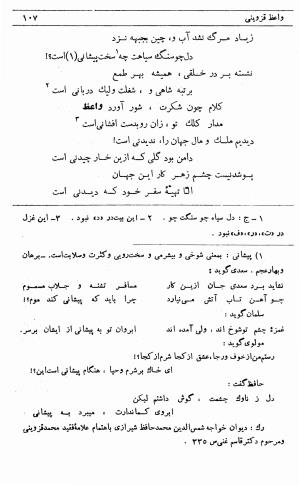 واعظ قزوینی
۱۰۷
زیاد مرگ نشد آب و، چین جبهه نزد
دل چو سنگ سیاهت چه ۱ سخت پیشانی(۱) است؟!
نشسته بر در خلقی، همیشه بهر طمع
برتبه شاهی و، شغلت ولیک دربانی است ۲
کلام چون شکرت، شور آورد واعظ
مدار کلک تو، زان رو بدست افشانی است ۳
دیدیم ملک و مال جهان را، ندیدنی است!
دامن بود گلی که ازین خار چیدنی است
پوشیدنست چشم ز هر کار این جهان
الا تهیّهٔ سفر خود که دیدنی است
۱ـ ج : دل سیاه چو سنگت چو . ۲ـ این بیت در «د» نبود . ۳ـ این غزل
در «ت»، «ر»، «ف» نبود .
۱) پیشانی : بمعنی شوخی و بیشرمی و سخت‌رویی و کثرت و صلابت است.ـ برهان
و بهار عجم . سعدی گوید :
نشاید برد سعدی جان ازین کار
مسافر تشنه و جلاب مسموم
چو آهن تاب آتش می‌نیارد
چرا باید که پیشانی کند موم؟!
سلمان گوید :
غمزهٔ چشم تو شوخ اند ، ولی آمده اند
ابروان تو به پیشانی از ایشان برسر.
مولوی گوید :
رستم من از خوف و رجا، عشق از کجا شرم از کجا؟!
ای خاک بر شرم و حیا ، هنگام پیشانی است این!
حافظ گفت :
دل ز ناوک چشمت ، گوش داشتم لیکن
ابروی کماندارت ، میبرد به پیشانی
رک : دیوان خواجه شمس‌الدین محمد حافظ شیرازی باهتمام علامهٔ فقید محمد قزوینی
و مرحوم دکتر قاسم غنی ص ۳۳۵ .